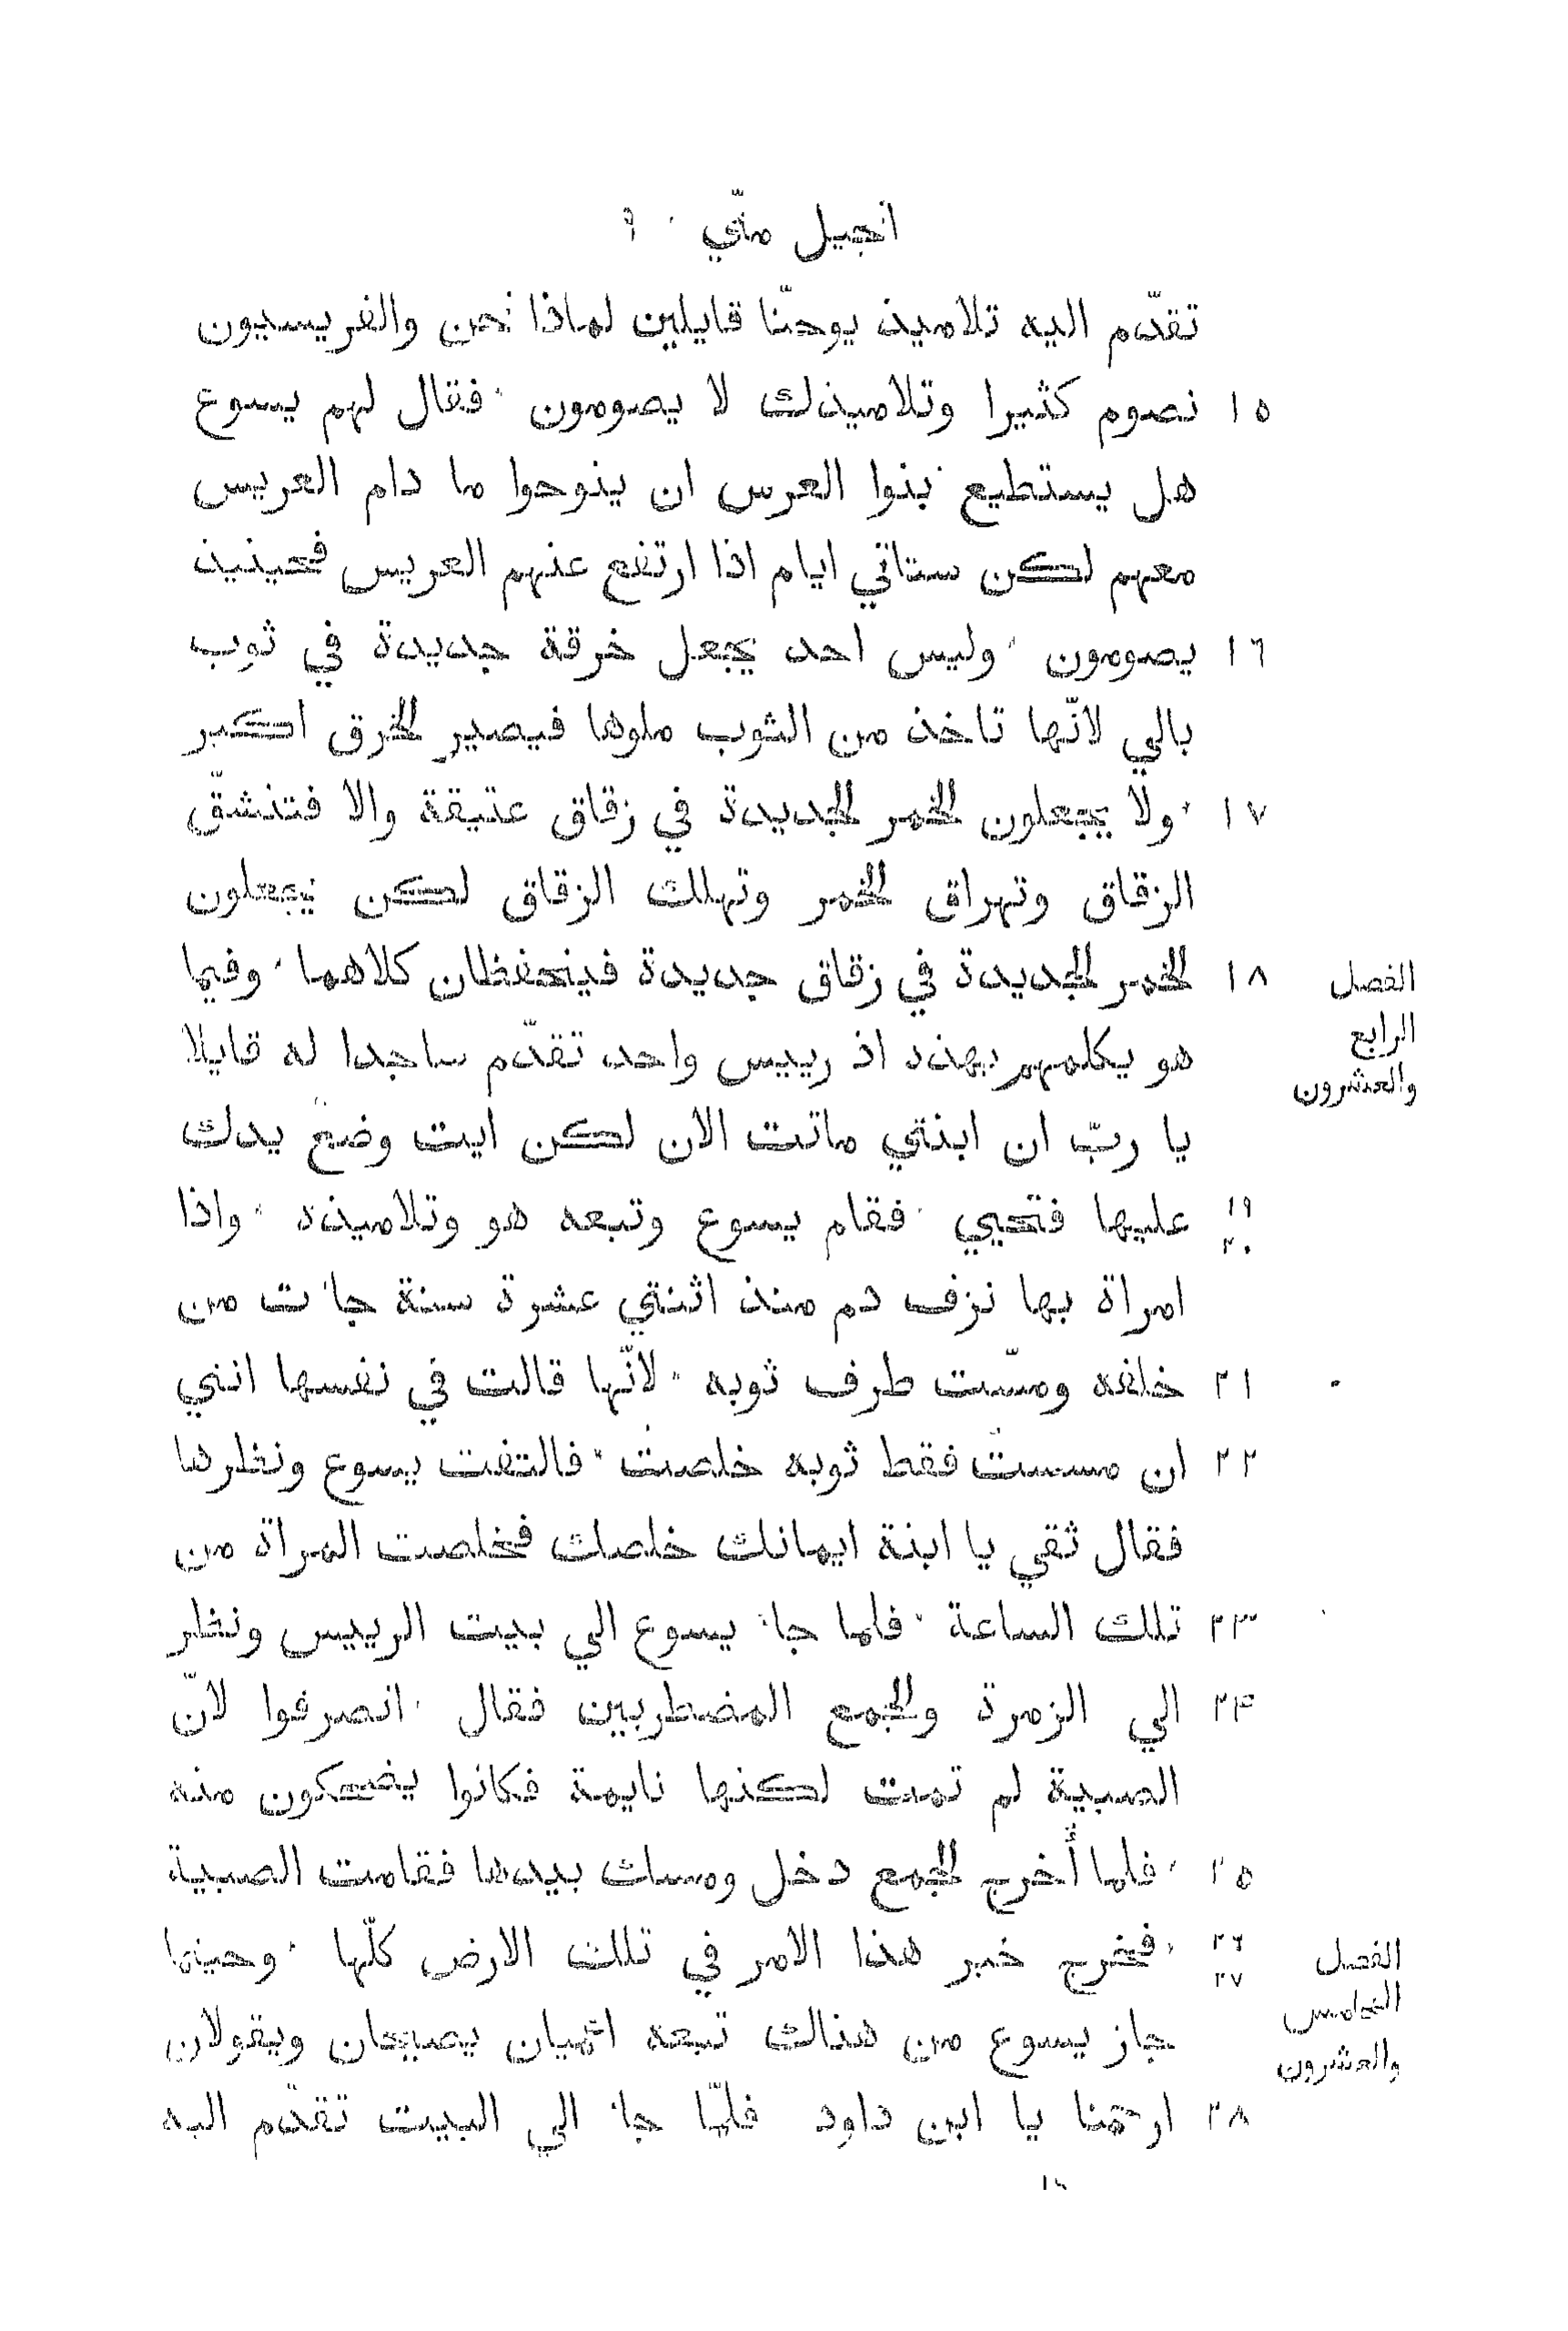 انجيل متّي ٩
تقدّم اليه تلاميذ يوحنّا قايلين لماذا نحن والفريسيون
١٥ نصوم كثيرا وتلاميذك لا يصومون ٠ فقال لهم يسوع
هل يستطيع بنوا العرس ان ينوحوا ما دام العريس
معهم لكن ستاتي ايام اذا ارتفع عنهم العريس فحينيذ
١٦ يصومون ٠ وليس احد يجعل خرقة جديدة في ثوب
بالي لانّها تاخذ من الثوب ملوها فيصير الخرق اكبر
١٧ ٠ ولا يجعلون الخمر الجديدة في زقاق عتيقة والا فتنشقّ
الزقاق وتهراق الخمر وتهلك الزقاق لكن يجعلون
١٨ الخمر الجديدة في زقاق جديدة فينحفظان كلاهما ٠ وفيما
الفصل
الرابع
والعشرون
هو يكلمهم بهذه اذ رييس واحد تقدّم ساجدا له قايلا
يا ربّ ان ابنتي ماتت الان لكن ايت وضع يدك
١٩ عليها فتحيي ٠ فقام يسوع وتبعه هو وتلاميذه ٠ واذا
٢٠
امراة بها نزف دم منذ اثنتي عشرة سنة جاءت من
٢١ خلفه ومسّت طرف ثوبه ٠ لانّها قالت في نفسها انني
٢٢ ان مسست فقط ثوبه خلصت ٠ فالتفت يسوع ونظرها
فقال ثقي يا ابنة ايمانك خلصك فخلصت المراة من
٢٣ تلك الساعة ٠ فلما جاء يسوع الي بيت الرييس ونظر
٢٤ الي الزمرة والجمع المضطربين فقال ٠ انصرفوا لانّ
الصبية لم تمت لكنها نايمة فكانوا يضحكون منه
٢٥ ٠ فلما أُخرج الجمع دخل ومسك بيدها فقامت الصبية
٢٦ ٠ فخرج خبر هذا الامر في تلك الارض كلّها ٠ وحينما
٢٧
الفصل
الخامس
والعشرون
جاز يسوع من هناك تبعه اعميان يصيحان ويقولان
٢٨ ارحمنا يا ابن داود فلمّا جاء الي البيت تقدّم اليه